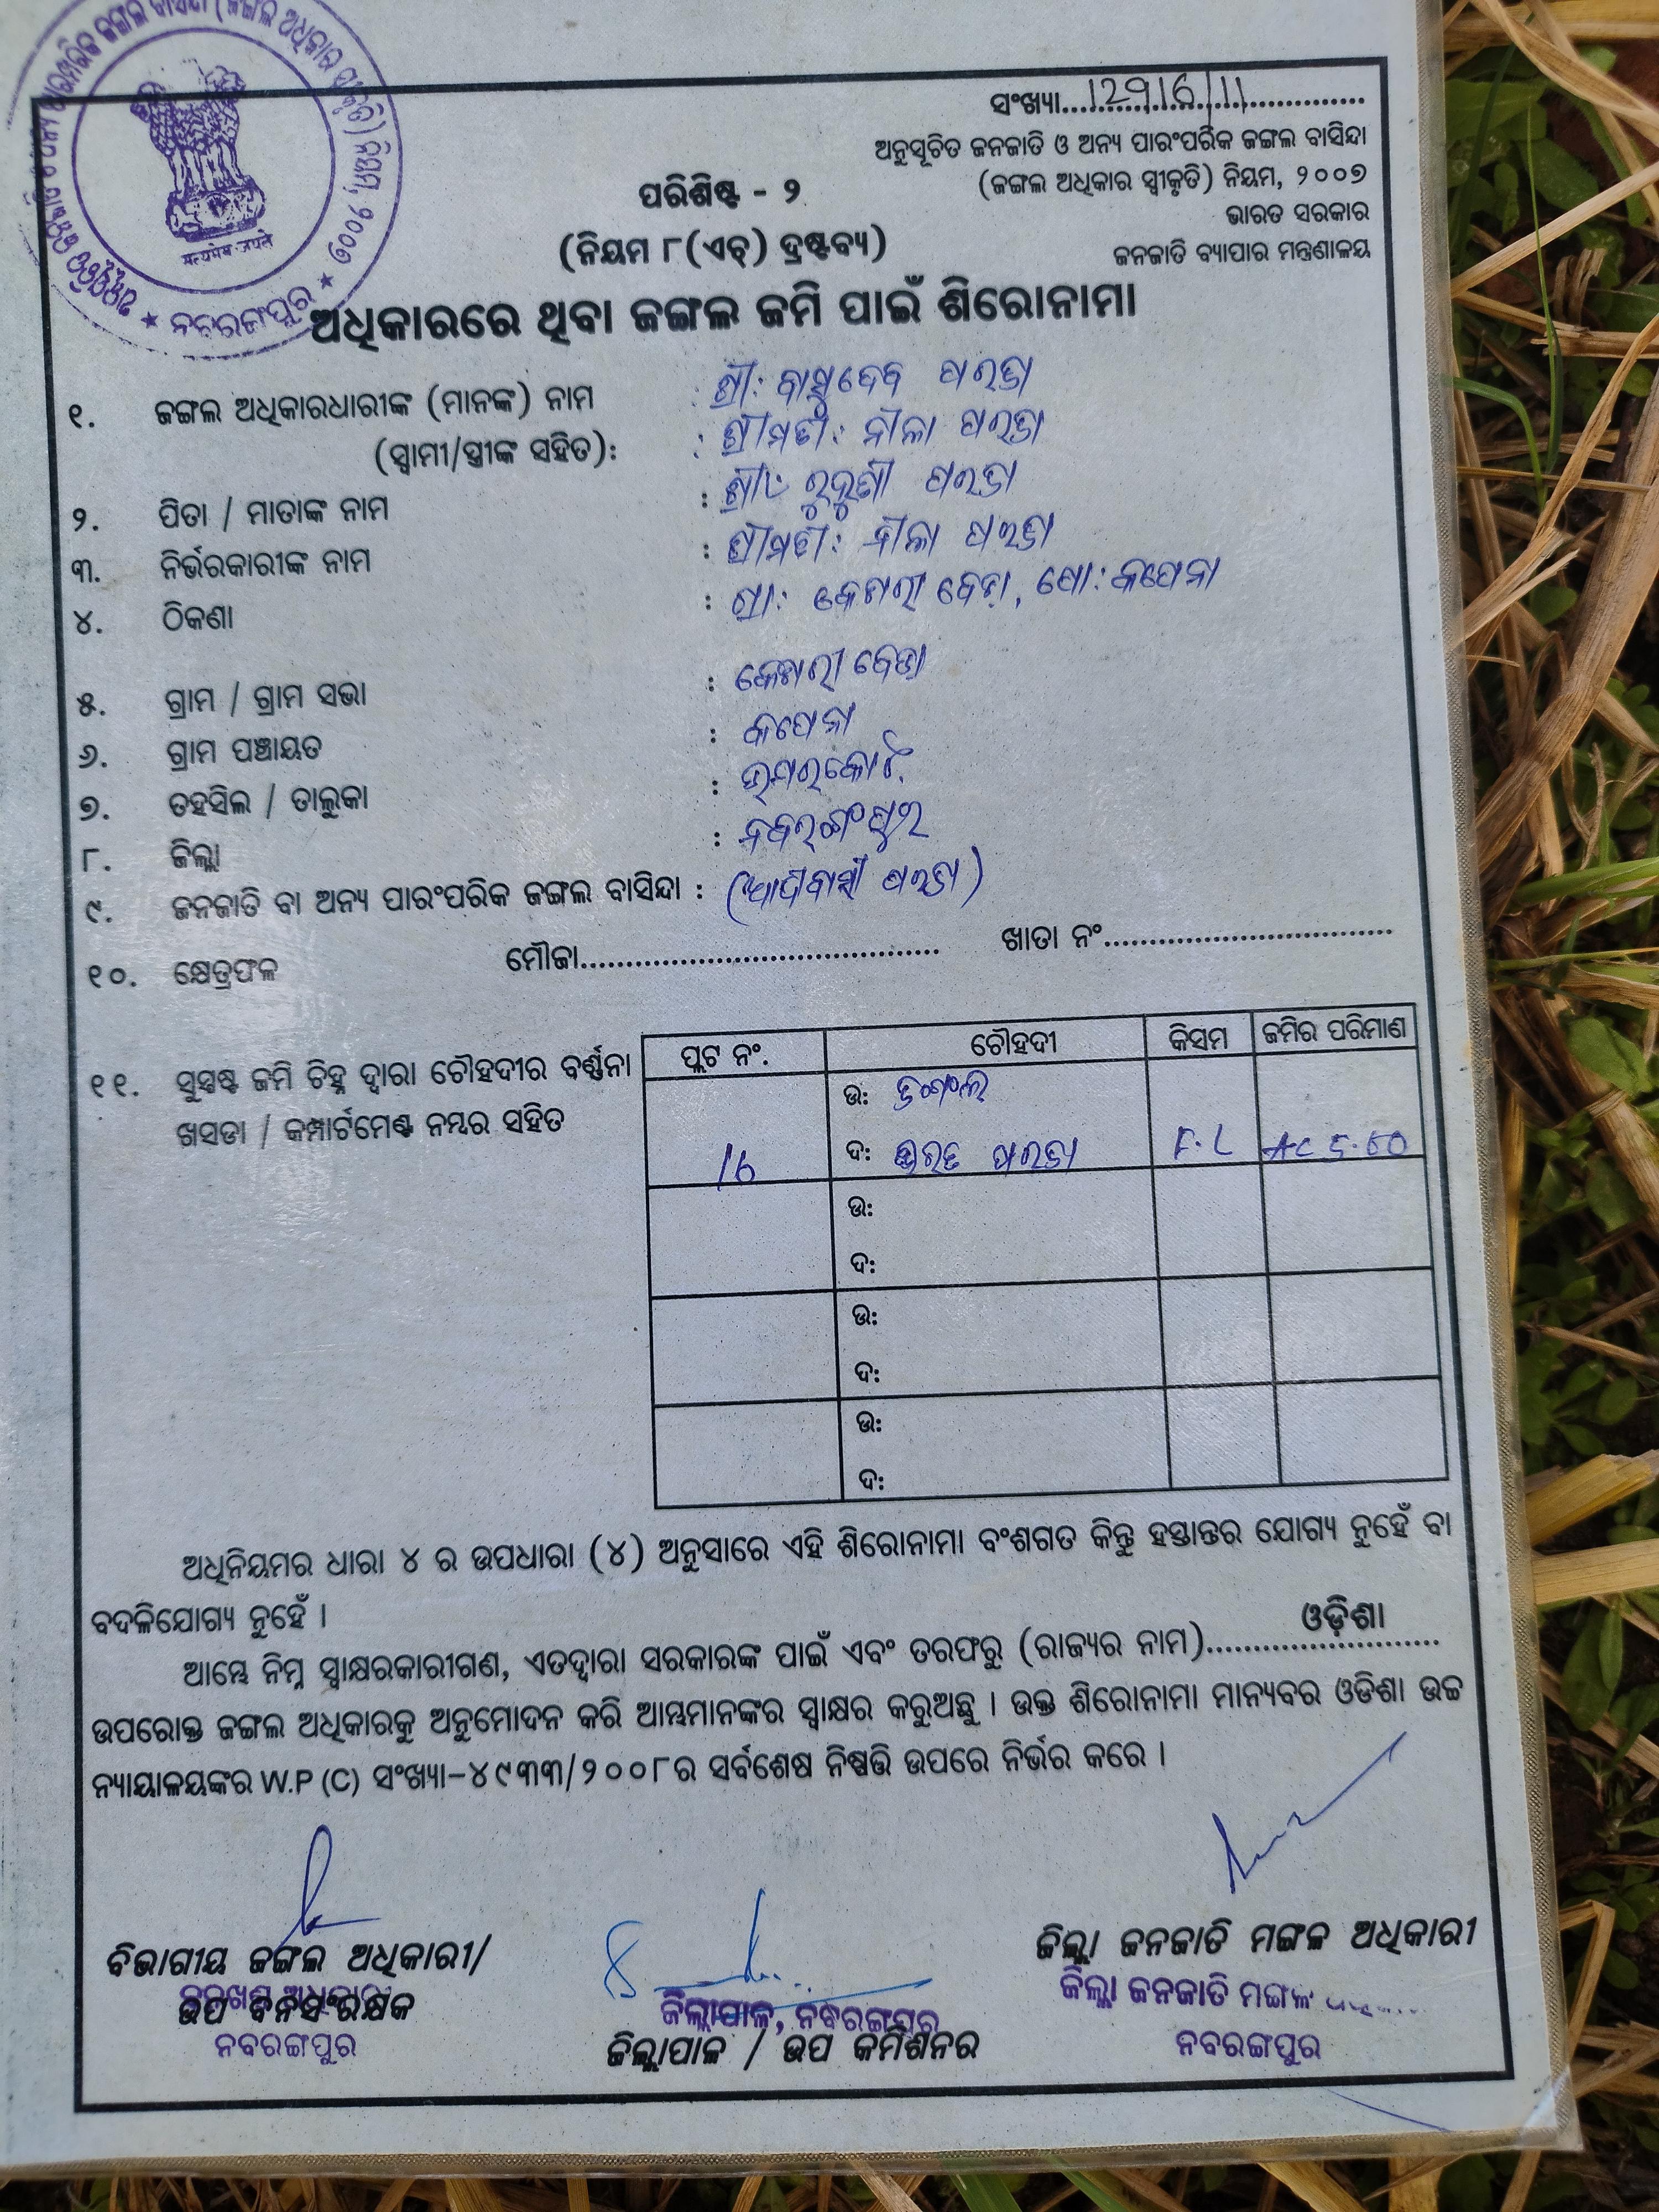 ସଂଖ୍ୟା.....12916/11.....
ଅନୁସୂଚିତ ଜନଜାତି ଓ ଅନ୍ୟ ପାରଂପରିକ ଜଙ୍ଗଲ ବାସିନ୍ଦା
(ଜଙ୍ଗଲ ଅଧିକାର ସ୍ୱୀକୃତି) ନିୟମ, ୨୦୦୭
ଭାରତ ସରକାର
ଜନଜାତି ବ୍ୟାପାର ମନ୍ତ୍ରଣାଳୟ
सत्यमेव जयते
★ ନବରଙ୍ଗପୁର ★
ପରିଶିଷ୍ଟ - ୨
(ନିୟମ ୮(ଏଚ୍) ଦ୍ରଷ୍ଟବ୍ୟ)
ଅଧିକାରରେ ଥିବା ଜଙ୍ଗଲ ଜମି ପାଇଁ ଶିରୋନାମା
୧. ଜଙ୍ଗଲ ଅଧିକାରଧାରୀଙ୍କ (ମାନଙ୍କ) ନାମ : ଶ୍ରୀ: ବାସୁଦେବ ପରଜା
(ସ୍ୱାମୀ/ସ୍ତ୍ରୀଙ୍କ ସହିତ): : ଶ୍ରୀମତୀ: ନୀଳା ପରଜା
୨. ପିତା / ମାତାଙ୍କ ନାମ : ପରଜା
୩. ନିର୍ଭରକାରୀଙ୍କ ନାମ : ଶ୍ରୀମତୀ: ନୀଳା ପରଜା
୪. ଠିକଣା : ଗ୍ରା: ପୋ:
୫. ଗ୍ରାମ / ଗ୍ରାମ ସଭା :
୬. ଗ୍ରାମ ପଞ୍ଚାୟତ :
୭. ତହସିଲ / ତାଲୁକା : ଉମରକୋଟ
୮. ଜିଲ୍ଲା : ନବରଙ୍ଗପୁର
୯. ଜନଜାତି ବା ଅନ୍ୟ ପାରଂପରିକ ଜଙ୍ଗଲ ବାସିନ୍ଦା : (ଆଦିବାସୀ ପରଜା)
୧୦. କ୍ଷେତ୍ରଫଳ ମୌଜା..................... ଖାତା ନଂ.....................
୧୧. ସୁସ୍ପଷ୍ଟ ଜମି ଚିହ୍ନ ଦ୍ୱାରା ଚୌହଦୀର ବର୍ଣ୍ଣନା
ଖସଡା / କମ୍ପାର୍ଟମେଣ୍ଟ ନମ୍ବର ସହିତ
ପ୍ଲଟ ନଂ. ଚୌହଦୀ କିସମ ଜମିର ପରିମାଣ
ଉ: ଜଙ୍ଗଲ
16 ଦ: ଭରତ ପରଜା F.L AC 5.50
ଉ:
ଦ:
ଉ:
ଦ:
ଉ:
ଦ:
ଅଧିନିୟମର ଧାରା ୪ ର ଉପଧାରା (୪) ଅନୁସାରେ ଏହି ଶିରୋନାମା ବଂଶଗତ କିନ୍ତୁ ହସ୍ତାନ୍ତର ଯୋଗ୍ୟ ନୁହେଁ ବା
ବଦଳିଯୋଗ୍ୟ ନୁହେଁ ।
ଆମ୍ଭେ ନିମ୍ନ ସ୍ୱାକ୍ଷରକାରୀଗଣ, ଏତଦ୍ଦ୍ୱାରା ସରକାରଙ୍କ ପାଇଁ ଏବଂ ତରଫରୁ (ରାଜ୍ୟର ନାମ)..........ଓଡ଼ିଶା..........
ଉପରୋକ୍ତ ଜଙ୍ଗଲ ଅଧିକାରକୁ ଅନୁମୋଦନ କରି ଆମ୍ଭମାନଙ୍କର ସ୍ୱାକ୍ଷର କରୁଅଛୁ । ଉକ୍ତ ଶିରୋନାମା ମାନ୍ୟବର ଓଡିଶା ଉଚ୍ଚ
ନ୍ୟାୟାଳୟଙ୍କର W.P (C) ସଂଖ୍ୟା-୪୯୩୩/୨୦୦୮ର ସର୍ବଶେଷ ନିଷ୍ପତ୍ତି ଉପରେ ନିର୍ଭର କରେ ।
ବିଭାଗୀୟ ଜଙ୍ଗଲ ଅଧିକାରୀ/
ଉପ ବନସଂରକ୍ଷକ
ନବରଙ୍ଗପୁର
ଜିଲ୍ଲାପାଳ, ନବରଙ୍ଗପୁର
ଜିଲ୍ଲାପାଳ / ଉପ କମିଶନର
ଜିଲ୍ଲା ଜନଜାତି ମଙ୍ଗଳ ଅଧିକାରୀ
ଜିଲ୍ଲା ଜନଜାତି ମଙ୍ଗଳ
ନବରଙ୍ଗପୁର